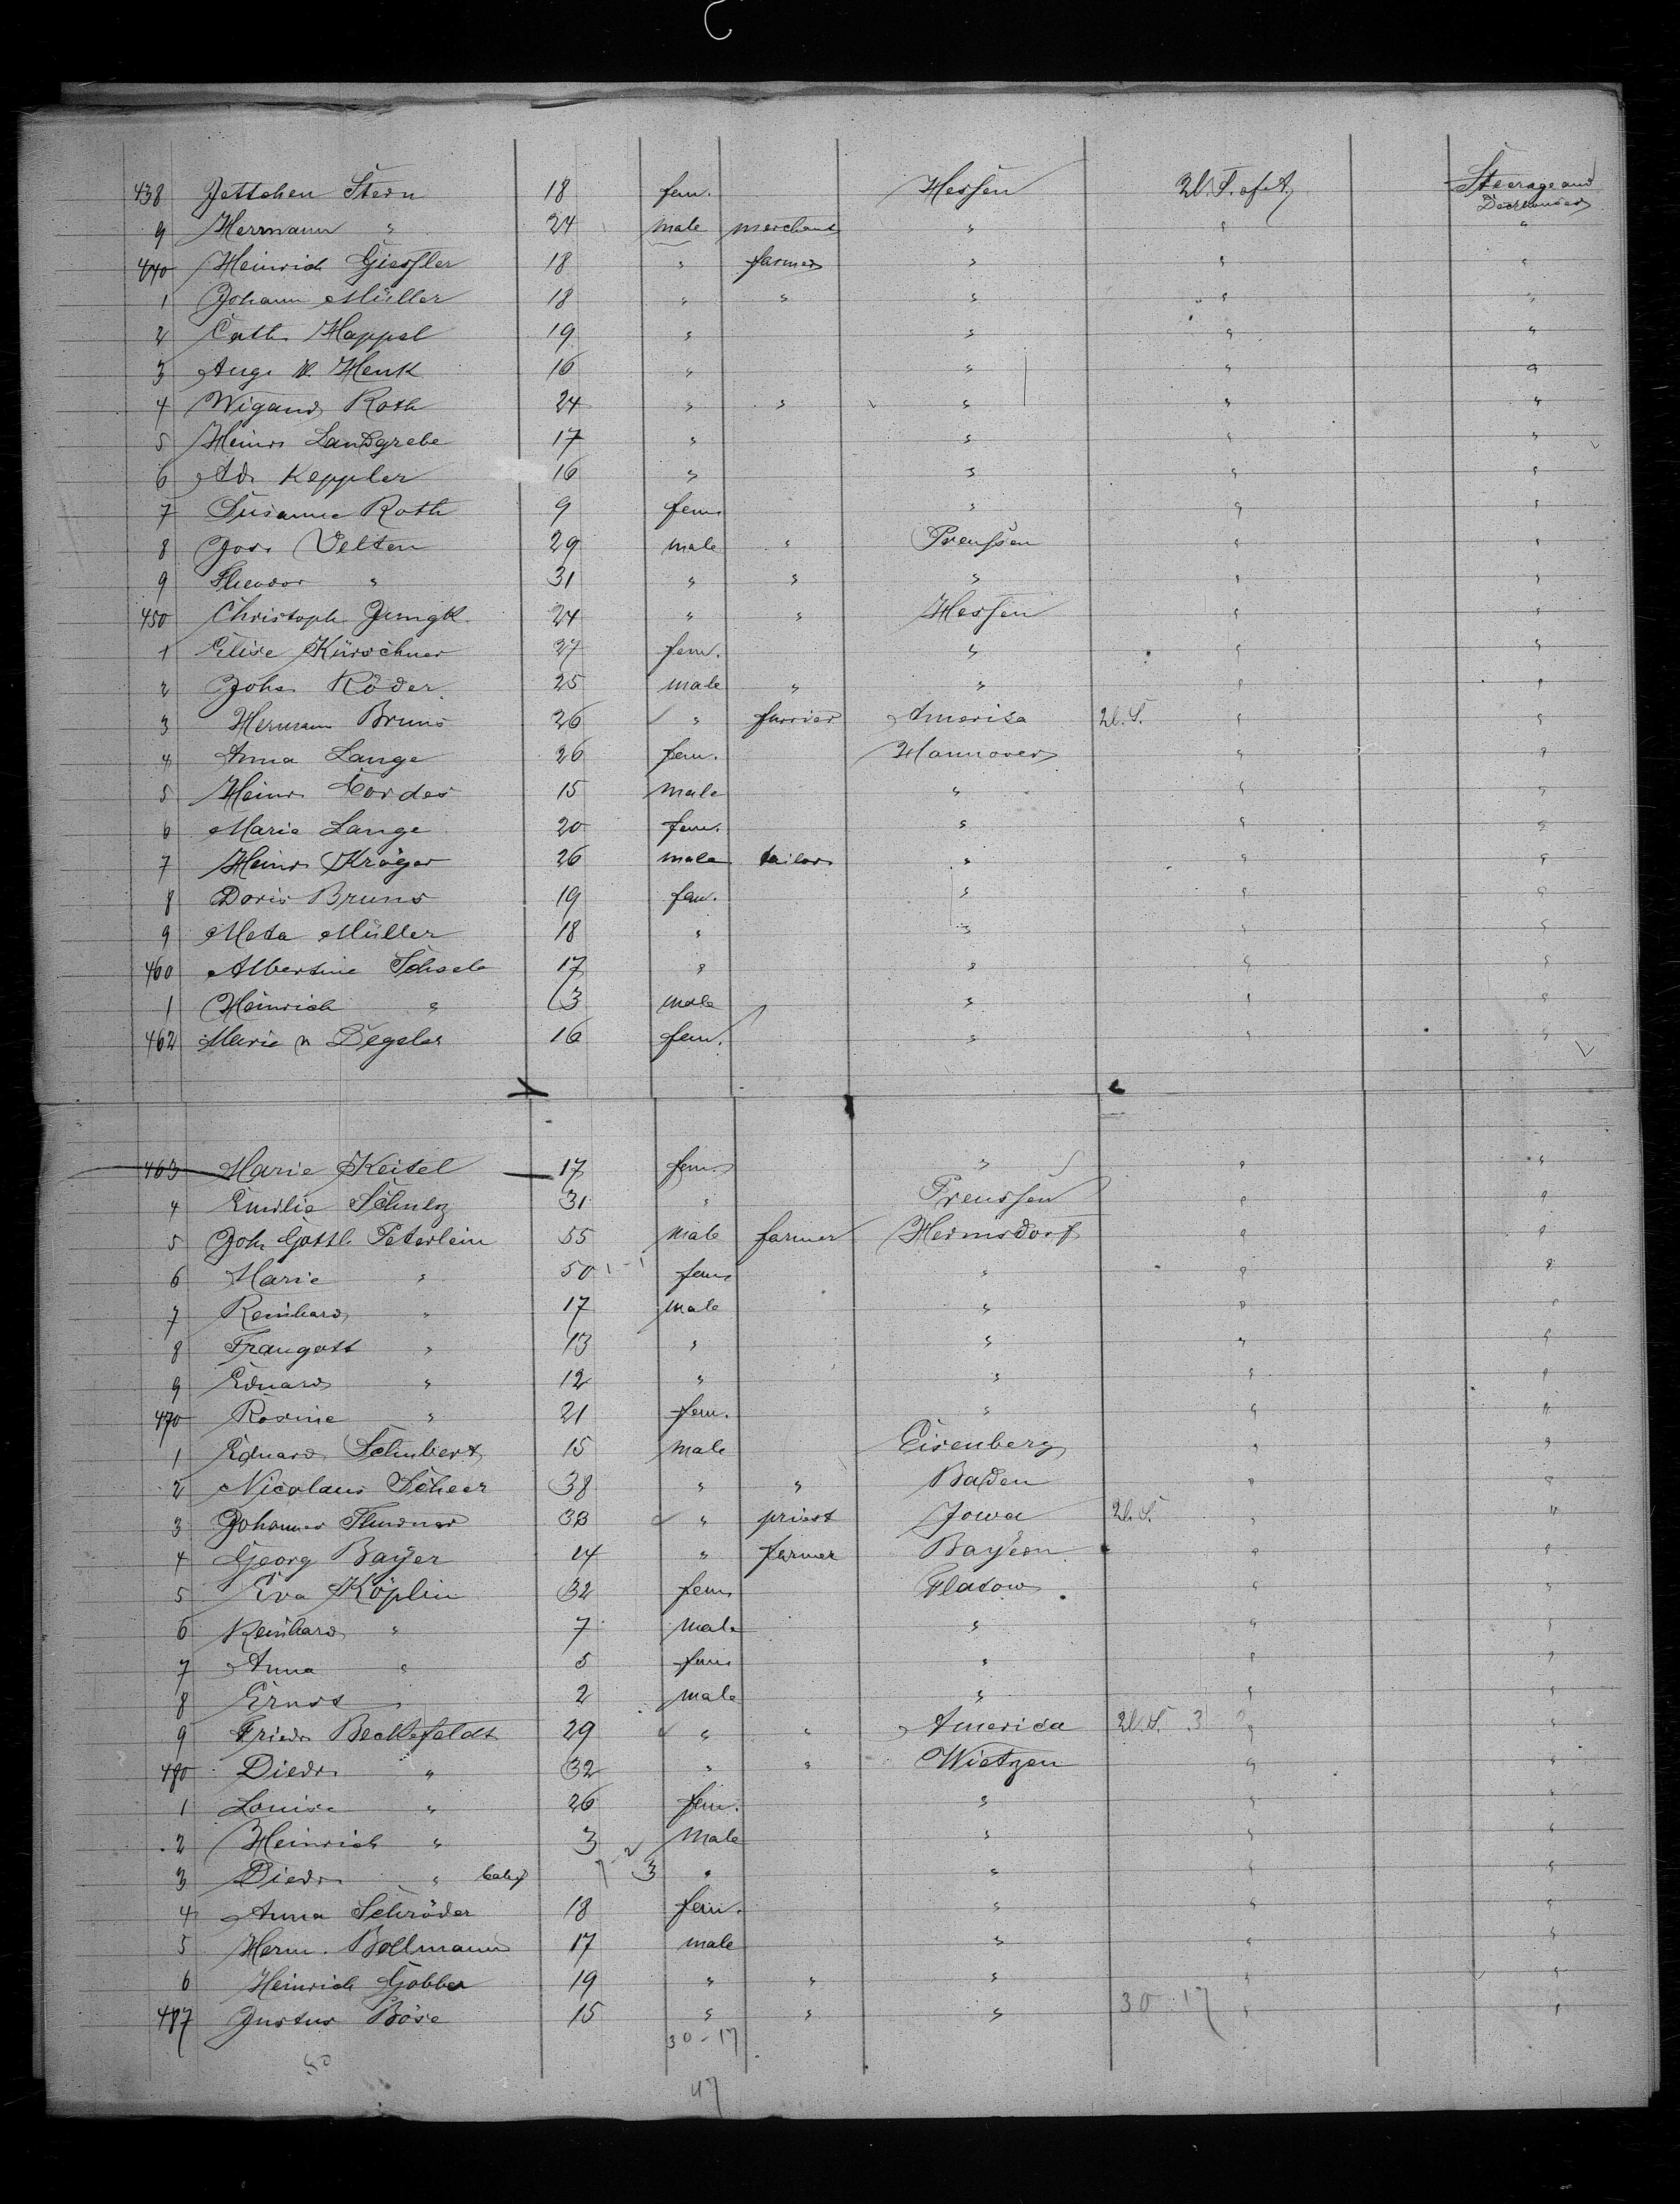 438 Jettchen Stern 18 fem. Hessen U. S. of A. Steerage and Deckhouse
9 Hermann " 24 male merchant " " "
440 Heinrich Giessler 18 " farmer " " "
1 Johann Müller 18 " " " " "
2 Cath. Happel 19 " " " "
3 Aug. W. Henk 16 " " " "
4 Wigand Roth 24 " " " " "
5 Heinr. Landgrebe 17 " " " "
6 Ad. Keppler 16 " " " "
7 Susanne Roth 9 fem. " " "
8 Jos. Velten 29 male " Preussen " "
9 Theodor " 31 " " " " "
450 Christoph Jungk 24 " " Hessen " "
1 Elise Kürschner 27 fem. " " "
2 Johs. Röder 25 male " " " "
3 Hermann Bruns 26 " furrier America U. S. " "
4 Anna Lange 26 fem. Hannover " "
5 Heinr. Cordes 15 male " " "
6 Marie Lange 20 fem. " " "
7 Heinr. Kröger 26 male tailor " " "
8 Doris Bruns 19 fem. " " "
9 Meta Müller 18 " " " "
460 Albertine 17 " " " "
1 Heinrich " 3 male " " "
462 Marie v Degeler 16 fem. " " "
463 Marie Keitel 17 fem. " " "
4 Emilie Schulz 31 " Preussen " "
5 Joh. Gottl. Peterlein 55 male farmer Hermsdorf " "
6 Marie " 50 fem. " " "
7 Reinhard " 17 male " " "
8 Traugott " 13 " " " "
9 Eduard " 12 " " " "
470 Rosine " 21 fem. " " "
1 Eduard Schubert 15 male Eisenberg " "
2 Nicolaus Scheer 38 " " Baden " "
3 Johannes 33 " priest Iowa U. S. " "
4 Georg Bayer 14 " farmer Bayern " "
5 Eva Köplin 32 fem. Flatow " "
6 Reinhard " 7 male " " "
7 Anna " 5 fem. " " "
8 Ernst " 2 male " " "
9 Friedr. Beckefeldt 29 " " America U. S. 3 " "
480 Diedr. " 32 " " Wietzen " "
1 Louise " 26 fem. " " "
2 Heinrich " 3 male " " "
3 Diedr. " baby 3 " " " "
4 Anna Schröder 18 fem. " " "
5 Herm. Bollmann 17 male " " "
6 Heinrich Göbber 19 " " " " "
487 Justus Böse 15 " " " 30 17 " "
30-17
47